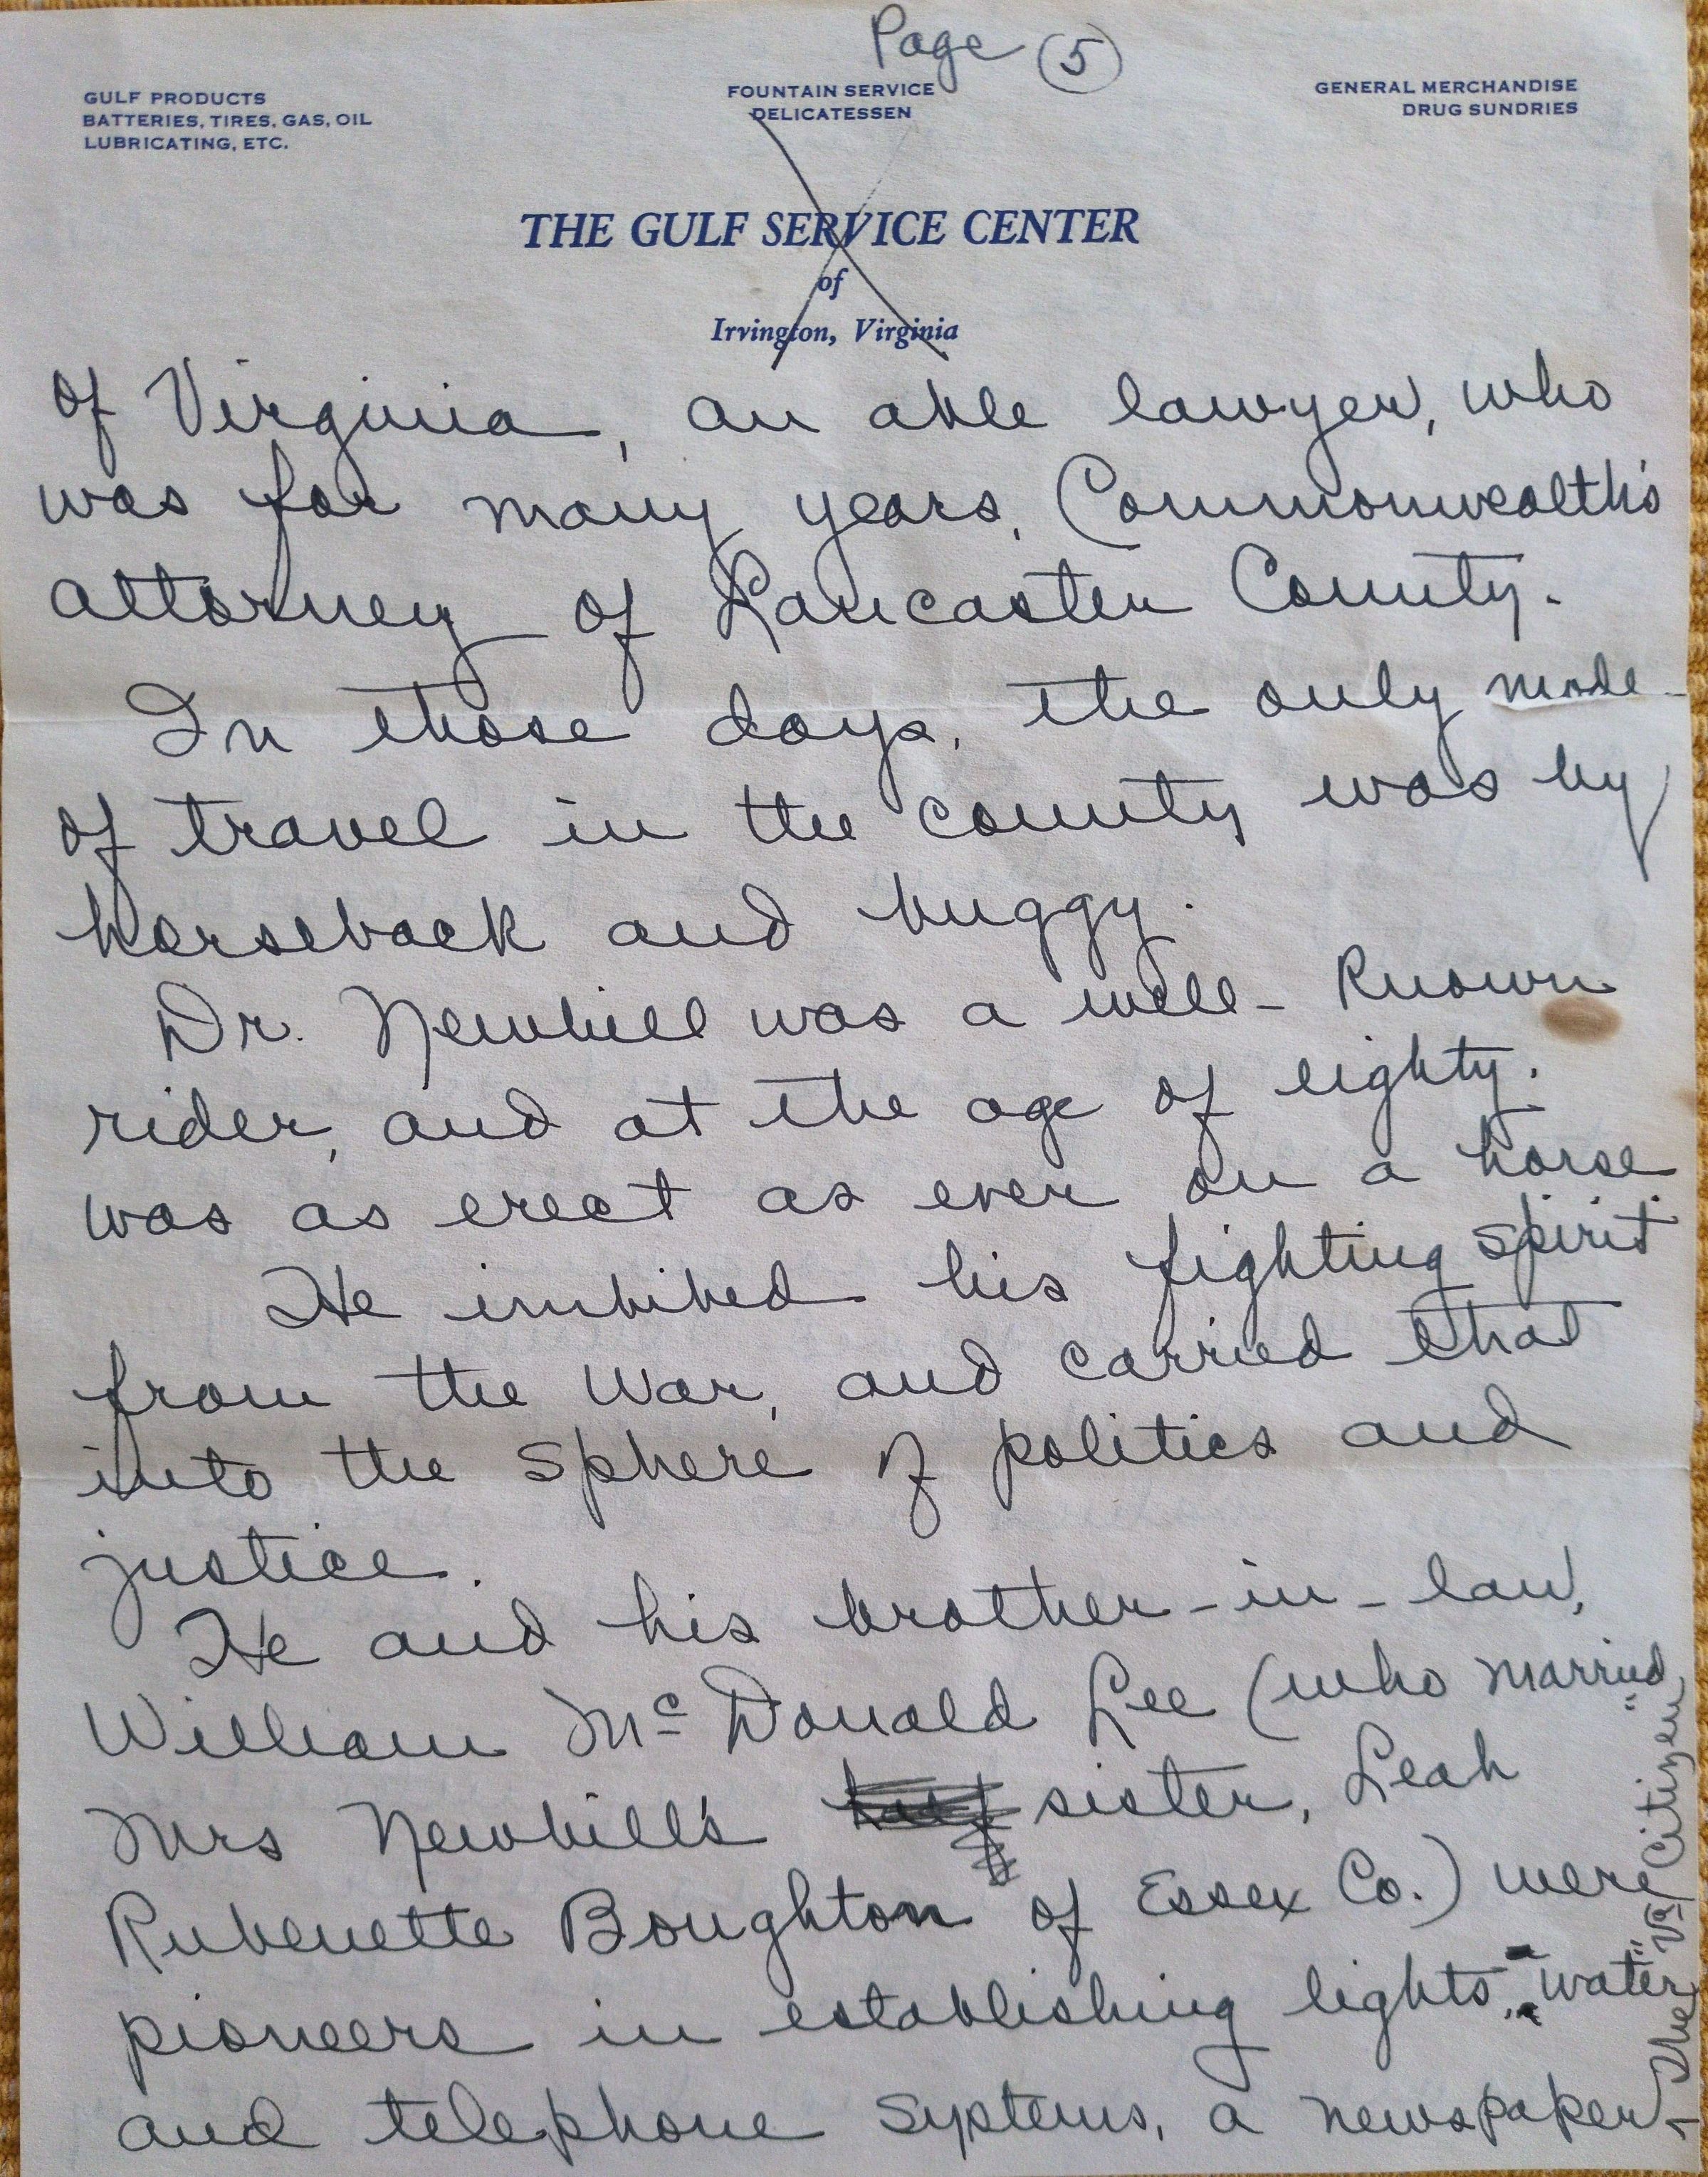 Page (5)
GULF PRODUCTS
BATTERIES, TIRES, GAS, OIL
LUBRICATING, ETC.
FOUNTAIN SERVICE
DELICATESSEN
GENERAL MERCHANDISE
DRUG SUNDRIES
THE GULF SERVICE CENTER
of
Irvington, Virginia
of Virginia, an able lawyer, who
was for many years, Commonwealth's
attorney of Lancaster County.
In those days, the only mode
of travel in the county was by
horseback and buggy.
Dr. Newbill was a well-known
rider, and at the age of eighty,
was as erect as ever on a horse.
He imbibed his fighting spirit
from the War, and carried that
into the sphere of politics and
justice.
He and his brother-in-law,
William Mc Donald Lee (who married
Mrs Newbill's sister, Leah
Rubenette Boughton of Essex Co.) were
pioneers in establishing lights, water
and telephone systems, a newspaper,
"The Va Citizen"